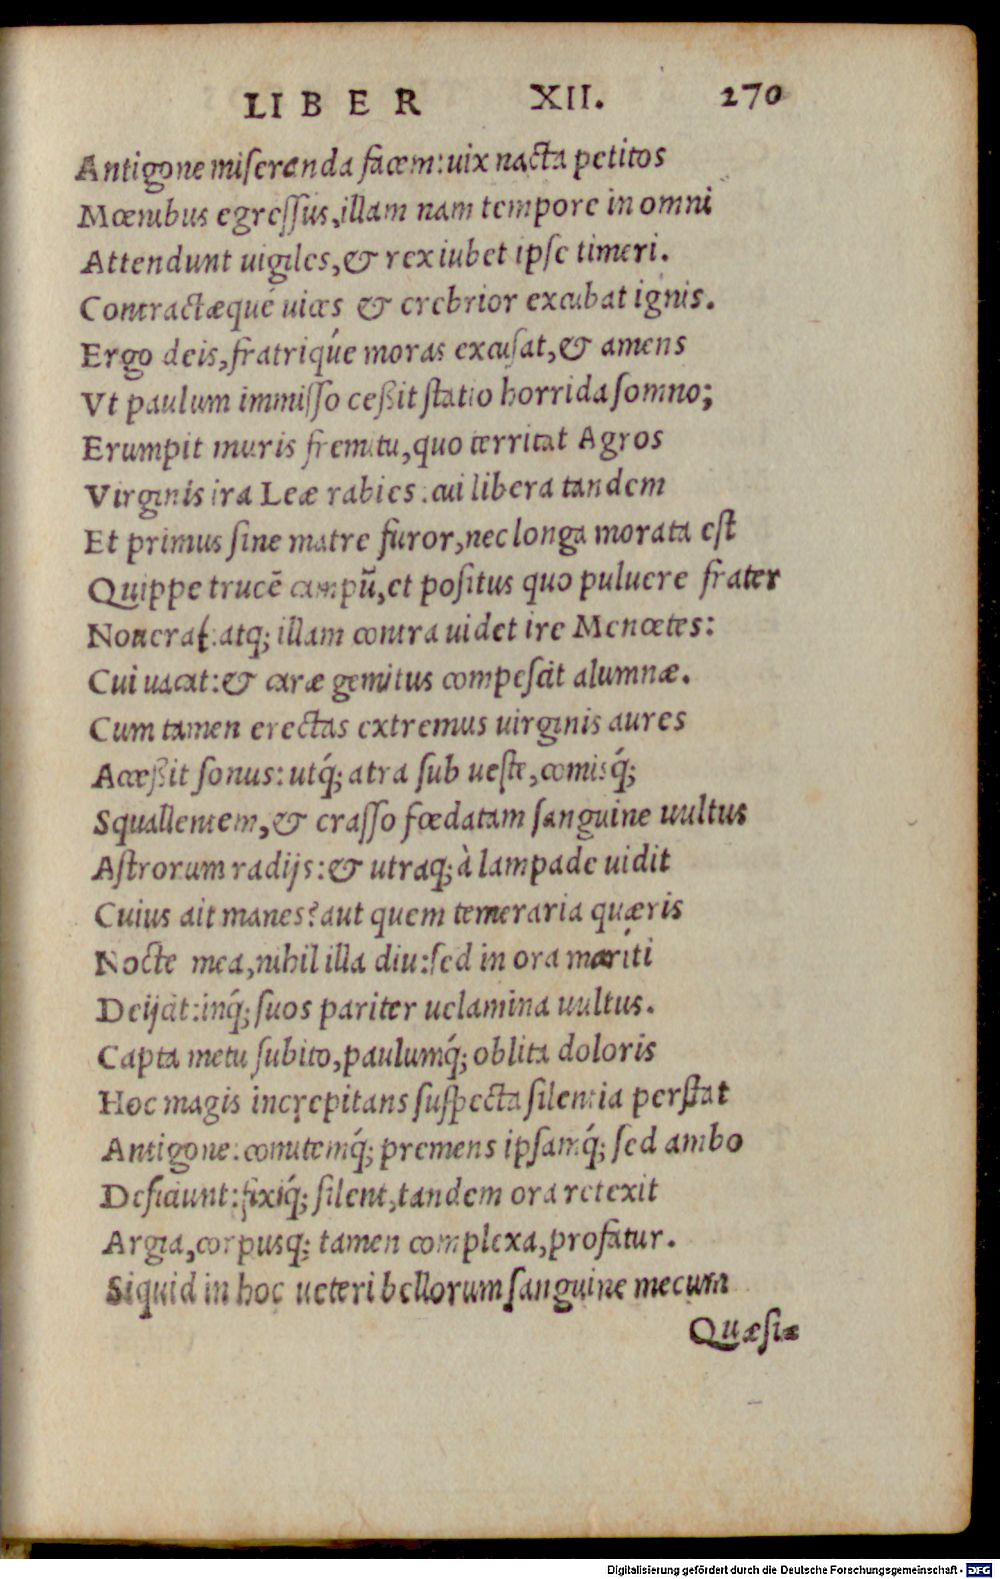 LIBER XII. 270
Antigone miseranda facem: uix nacta petitos
Mœnibus egressus, illam nam tempore in omni
Attendunt uigiles, & rex iubet ipse timeri.
Contractæqué uices & crebrior excubat ignis.
Ergo deis, fratriqúe moras excusat, & amens
Vt paulum immisso ceßit statio horrida somno;
Erumpit muris fremitu, quo territat Agros
Virginis ira Leæ rabies. cui libera tandem
Et primus sine matre furor, nec longa morata est
Quippe trucē campū, et positus quo puluere frater
Nouerat: atq; illam contra uidet ire Menœtes:
Cui uacat: & caræ gemitus compescit alumnæ.
Cum tamen erectas extremus uirginis aures
Acceßit sonus: utq́; atra sub ueste, comisq́;
Squallentem, & crasso fœdatam sanguine uultus
Astrorum radijs: & utraq; à lampade uidit
Cuius ait manes? aut quem temeraria quæris
Nocte mea, nihil illa diu: sed in ora mariti
Deijcit: inq́; suos pariter uelamina uultus.
Capta metu subito, paulumq́; oblita doloris
Hoc magis increpitans suspecta silentia perstat
Antigone: comitemq́; premens ipsamq́; sed ambo
Deficiunt: fixiq́; silent, tandem ora retexit
Argia, corpusq; tamen complexa, profatur.
Siquid in hoc ueteri bellorum sanguine mecum
Quæsi=
Digitalisierung gefördert durch die Deutsche Forschungsgemeinschaft - DFG